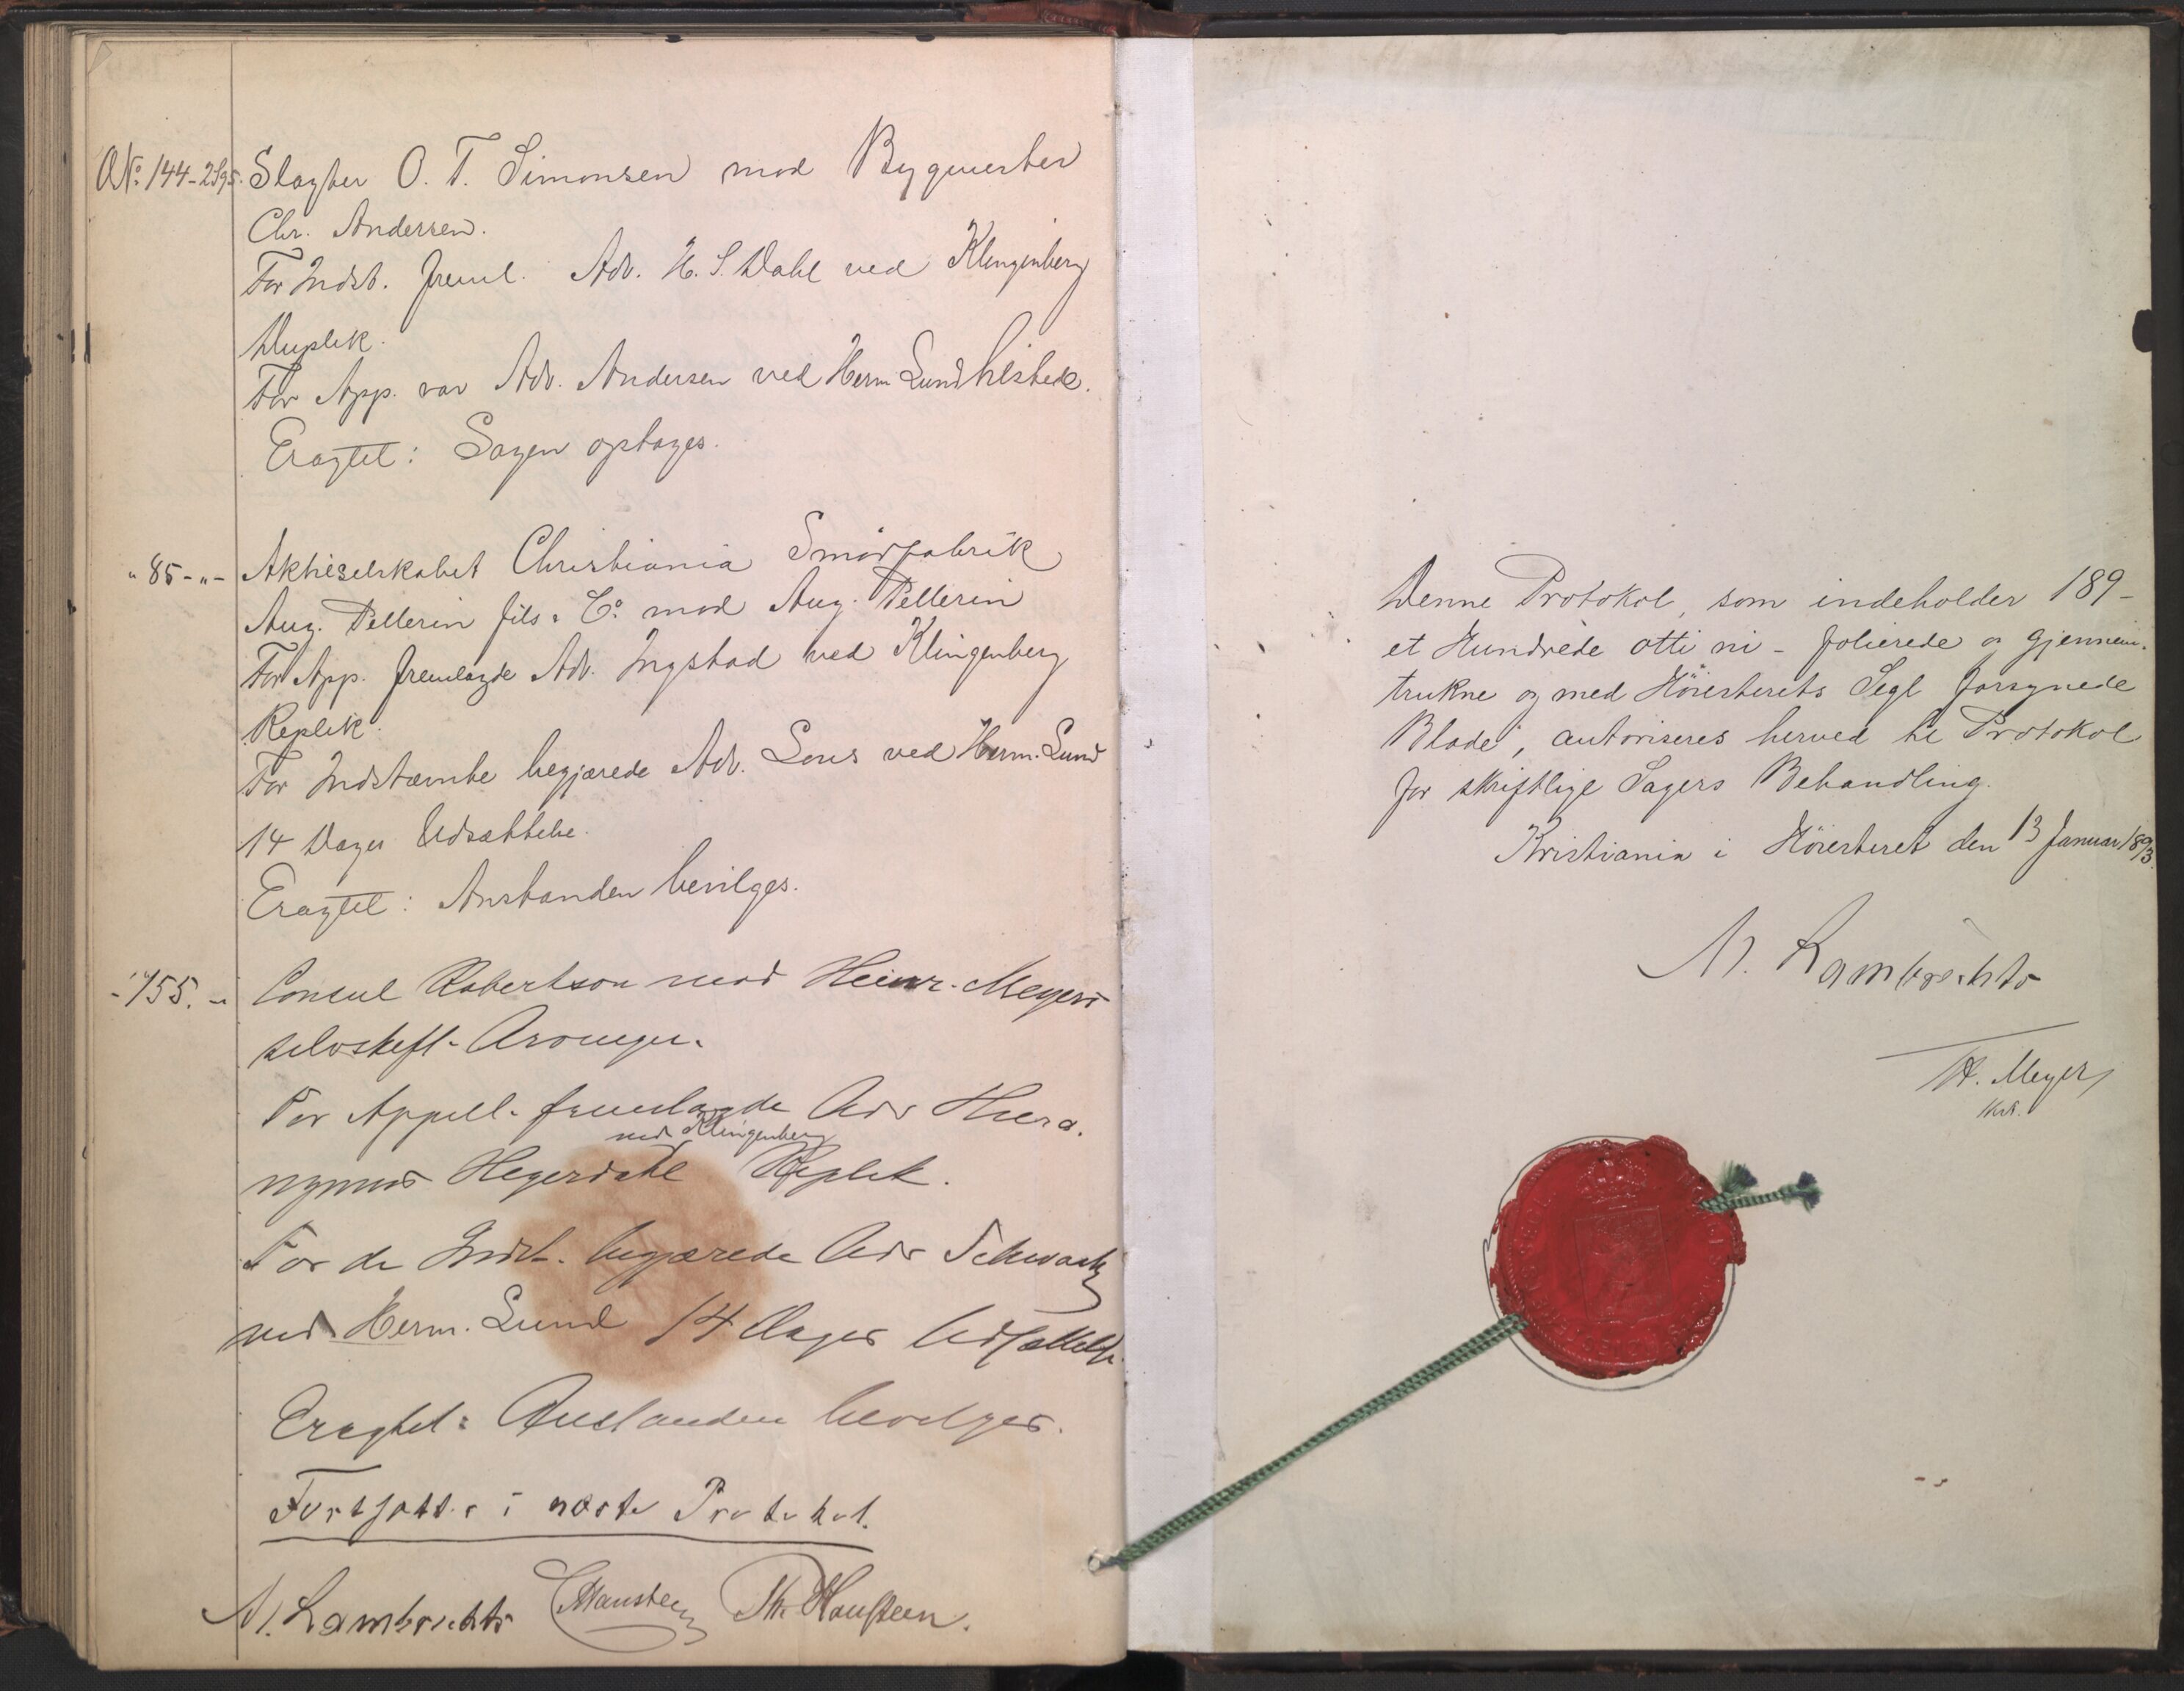 No. 144-2s95. Slagter O. T. Simonsen mod Bygmester
Chr. Andersen.
For Indst. freml. Adv. H. S. Dahl ved Klingenberg
Duplik.
For App. var Adv. Andersen ved Herm Lund tilstede.
Eragtet: Sagen optages.
" 85-"- Aktieselskabet Christiania Smörfabrik
Aug. Pellerin fils & Co. mod Aug. Pellerin
For App. fremlagde Adv. Ingstad ved Klingenberg
Replik.
For Indstævnte begjærede Adv. Lous ved Herm. Lund
14 Dages Udsættelse.
Eragtet: Anstanden bevilges.
-"155.-" Consul Robertson mod Heinr. Meyers
selvskift. Arvinger.
For Appell. fremlagde Adv Hiero-
ved Klingenberg
nymus Heyerdahl Replik.
For de Indst. begjærede Adv Schwartz
ved Herm. Lund 14 Dages Udsættelse.
Eragtet: Anstanden bevilges.
Fortsættes i næste Protokol.
M. Lambrechts Hansteen Th. Hansteen.
Denne Protokol, som indeholder 189-
et Hundrede otti ni - folierede og gjennem-
trukne og med Höiesterets Segl forsynede
Blade, autoriseres herved til Protokol
for skriftlige Sagers Behandling.
Kristiania i Höiesteret den 13 Januar 1893.
M. Lambrechts
H. Meyer